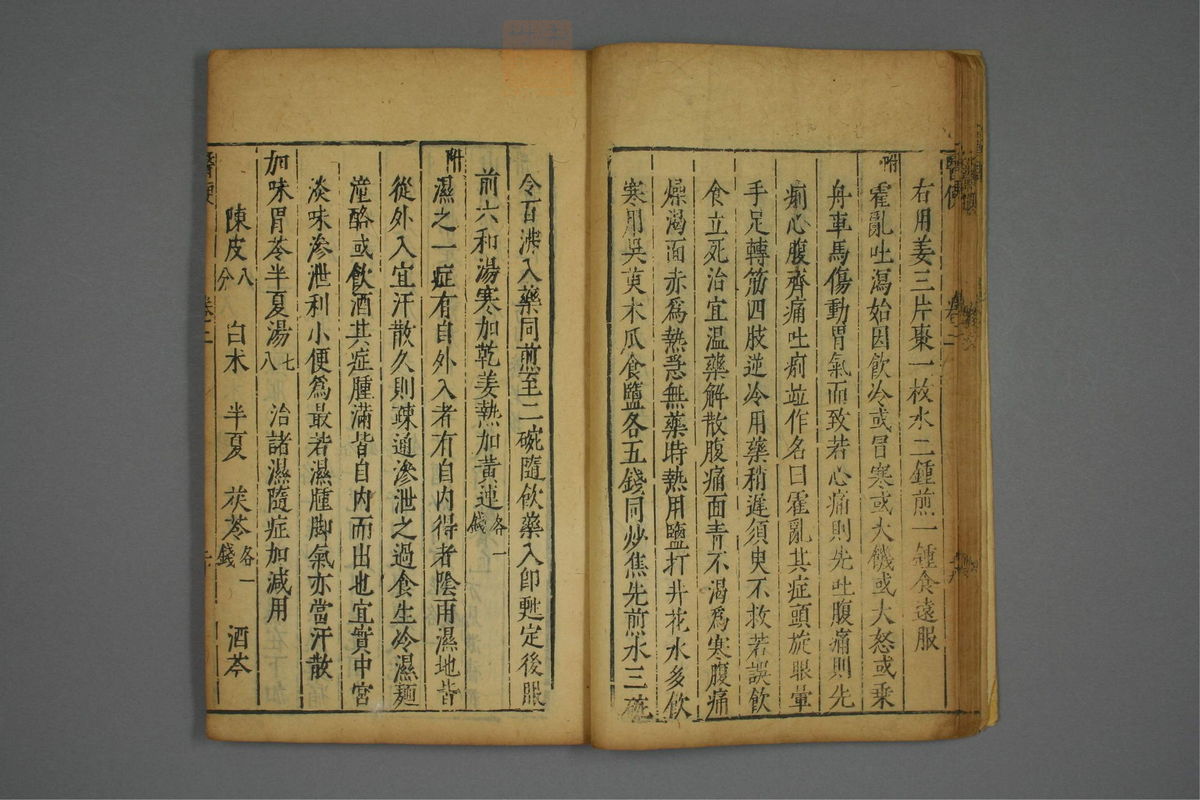 右用姜三片棗一枚水二鍾煎一鍾食遠服
附
霍亂吐瀉始因飲冷或冒寒或大饑或大怒或乗
舟車馬傷動胃氣而致若心痛則先吐腹痛則先
痢心腹齊痛吐痢並作名曰霍亂其症頭旋眼暈
手足轉筋四肢逆冷用藥稍遲須臾不救若誤飲
食立死治宜温藥解散腹痛面青不渴爲寒腹痛
燥渴面赤爲熱急無藥時熱用鹽打井花水多飲
寒用吳茰木瓜食鹽各五錢同炒焦先煎水三碗
令百沸入藥同煎至二碗隨飲藥入即甦定後服
前六和湯寒加乾姜熱加黃連各一錢
附
濕之一症有自外入者有自内得者陰雨濕地皆
從外入宜汗散久則疎通滲泄之過食生冷濕麵
潼酪或飲酒其症腫滿皆自内而出也宜實中宮
淡味滲泄利小便爲最若濕腫脚氣亦當汗散
加味胃苓半夏湯 七八 治諸濕隨症加減用
陳皮八分 白朮 半夏 茯苓各一錢 酒芩
醫便 卷二